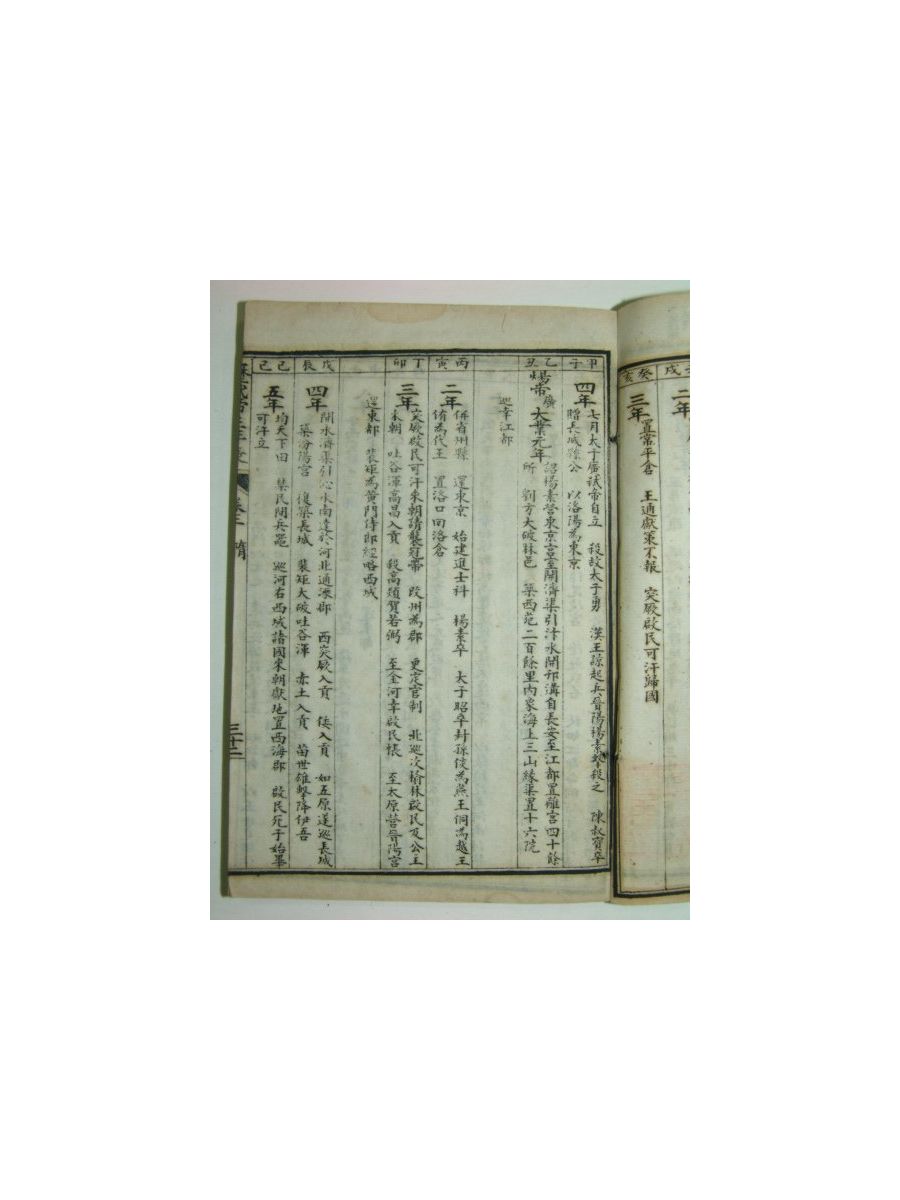 戌
二年
癸亥
三年
置常平倉 王通獻策不報 突厥啟民可汗歸國
甲子
四年
七月太子廣弒帝自立 殺故太子勇 漢王諒起兵晉陽楊素擊殺之 陳叔寶卒
贈長城縣公 以洛陽為東京
乙丑
煬帝廣
大業元年
詔楊素營東京宮室開濟渠引汴水開邗溝自長安至江都置離宮四十餘
所 劉方大破林邑 築西苑二百餘里內象海上三山緣渠置十六院
巡幸江都
丙寅
二年
併省州縣 還東京 始建進士科 楊素卒 太子昭卒封孫倓為燕王侗為越王
侑為代王 置洛口回洛倉
丁卯
三年
突厥啟民可汗來朝請襲冠帶 改州為郡 更定官制 北巡次榆林啟民及公主
來朝 吐谷渾高昌入貢 殺高熲賀若弼 至金河幸啟民帳 至太原營晉陽宮
還東都 裴矩為黃門侍郎經略西域
戊辰
四年
開永濟渠引沁水南達於河北通涿郡 西突厥入貢 倭入貢 如五原遂巡長城
築汾陽宮 復築長城 裴矩大破吐谷渾 赤土入貢 苗世雄擊降伊吾
己巳
五年
均天下田 禁民間兵器 巡河右西域諸國來朝獻地置西海郡 啟民死子始畢
可汗立
卷三 隋
三十二